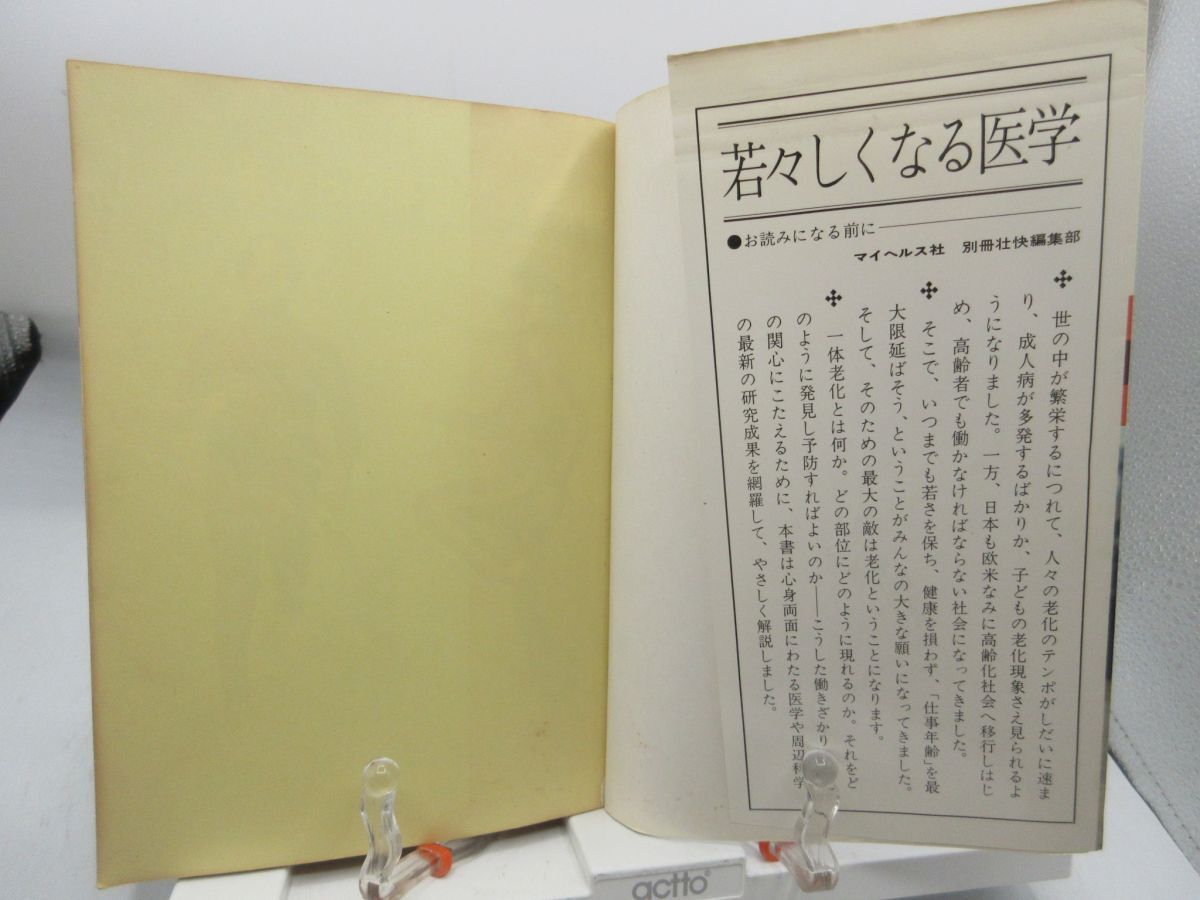 若々しくなる医学
●お読みになる前に
マイヘルス社 別冊壮快編集部
世の中が繁栄するにつれて、人々の老化のテンポがしだいに速ま
り、成人病が多発するばかりか、子どもの老化現象さえ見られるよ
うになりました。一方、日本も欧米なみに高齢化社会へ移行しはじ
め、高齢者でも働かなければならない社会になってきました。
そこで、いつまでも若さを保ち、健康を損わず、「仕事年齢」を最
大限延ばそう、ということがみんなの大きな願いになってきました。
そして、そのための最大の敵は老化ということになります。
一体老化とは何か。どの部位にどのように現れるのか。それをど
のように発見し予防すればよいのか――こうした働きざかり
の関心にこたえるために、本書は心身両面にわたる医学や周辺科学
の最新の研究成果を網羅して、やさしく解説しました。
actto